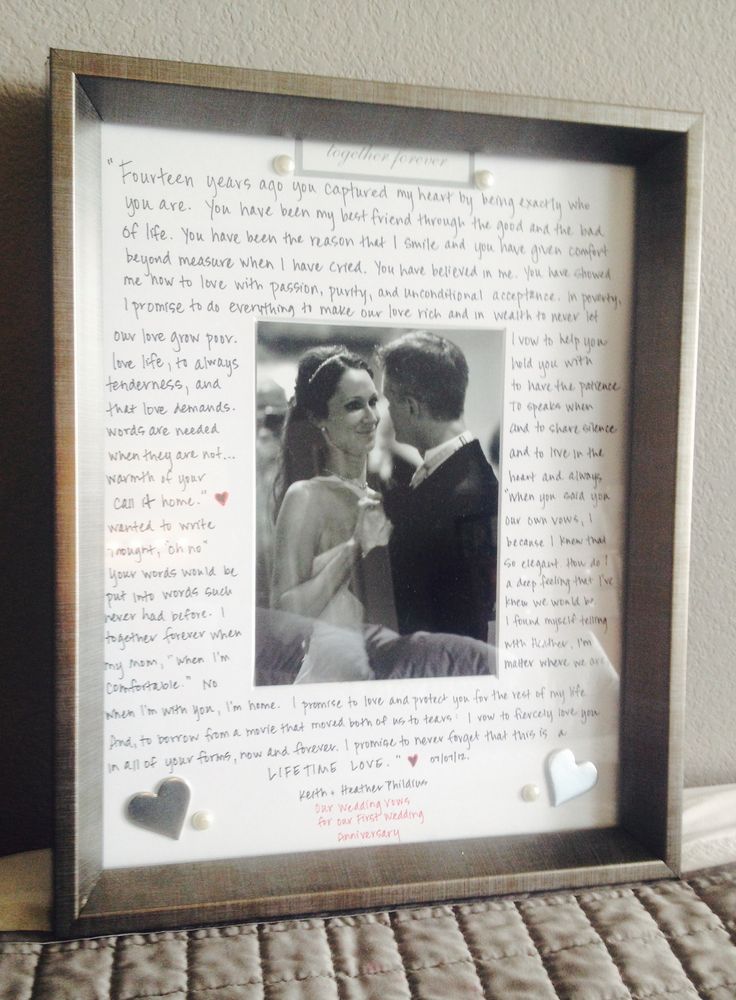 together forever
"Fourteen years ago you captured my heart by being exactly who
you are. You have been my best friend through the good and the bad
of life. You have been the reason that I smile and you have given comfort
beyond measure when I have cried. You have believed in me. You have showed
me how to love with passion, purity, and unconditional acceptance. In poverty,
I promise to do everything to make our love rich and in wealth to never let
our love grow poor. I vow to help you
love life, to always hold you with
tenderness, and to have the patience
that love demands. To speaks when
words are needed and to share silence
when they are not... and to live in the
warmth of your heart and always
call it home." ♥ "When you said you
wanted to write our own vows, I
thought, "oh no" because I knew that
your words would be so elegant. How do I
put into words such a deep feeling that I've
never had before. I knew we would be
together forever when I found myself telling
my mom, "when I'm with Heather, I'm
comfortable." No matter where we are
when I'm with you, I'm home. I promise to love and protect you for the rest of my life
And, to borrow from a movie that moved both of us to tears: I vow to fiercely love you
in all of your forms, now and forever. I promise to never forget that this is a
LIFETIME LOVE." ♥ 07/07/12.
Keith + Heather Phildius
Our Wedding Vows
for our First Wedding
Anniversary